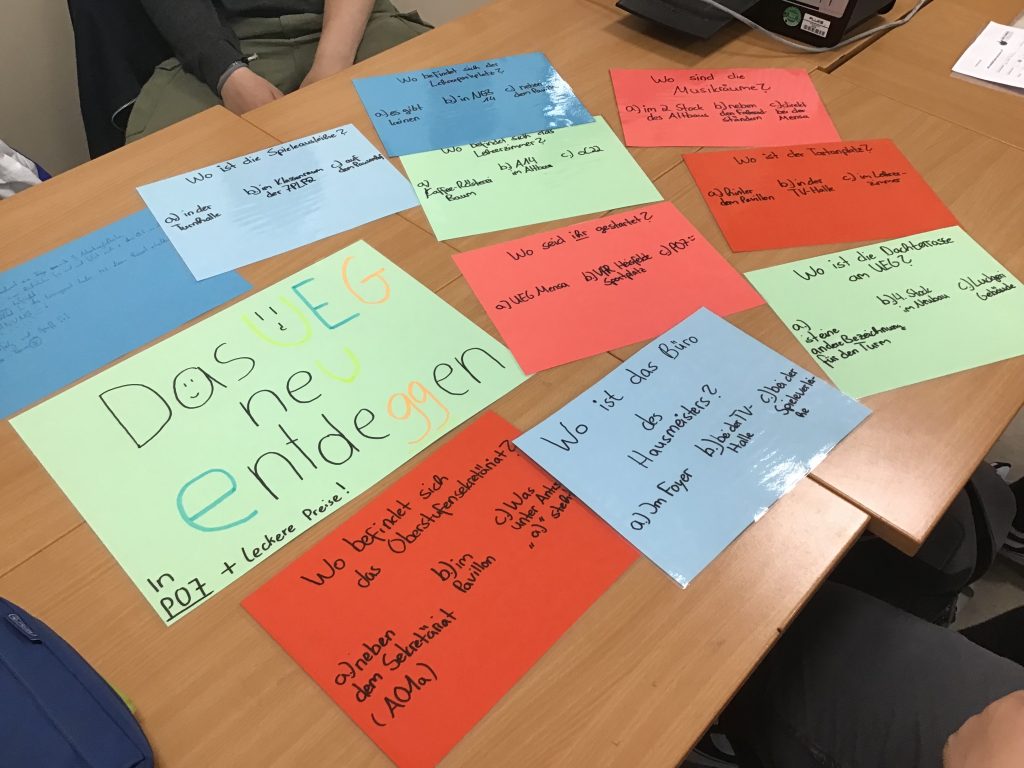 Das UEG
neu
entdeggen
In
P07 + Leckere Preise!
Wo befindet sich der
Lehrerparkplatz?
a) es gibt
keinen
b) in NGZ
14
c) neben
dem
Wo sind die
Musikräume?
a) im 2 Stock
des Altbaus
b) neben
den Fahrrad-
ständern
c) direkt
bei der
Mensa
Wo ist die Spieleausleihe?
a) in der
Turnhalle
b) im Klassenraum
der
c) auf
dem Pausenhof
Wo befindet sich das
Lehrerzimmer?
a)
Baum
b) A14
im Altbau
c)
Wo ist der Tartanplatz?
a) hinter
dem Pavillon
b) in der
TV-Halle
c) im Lehrer-
zimmer
Wo seid ihr gestartet?
a) UEG Mensa
b) VfR
Sportplatz
c) P07
Wo ist die Dachterrasse
am UEG?
a)
ist eine
andere Bezeichnung
für den Turm
b) 4. Stock
im Neubau
c) Ludgeri
Gebäude
Wo ist das Büro
des
Hausmeisters?
a) Im Foyer
b) bei der TV-
Halle
c) bei der
Spieleverlei-
he
Wo befindet sich
das Oberstufensekretäriat?
a) neben
dem Sekretäriat
(A01a)
b) im
Pavillon
c) Was
unter Antwort
„a)“ steht